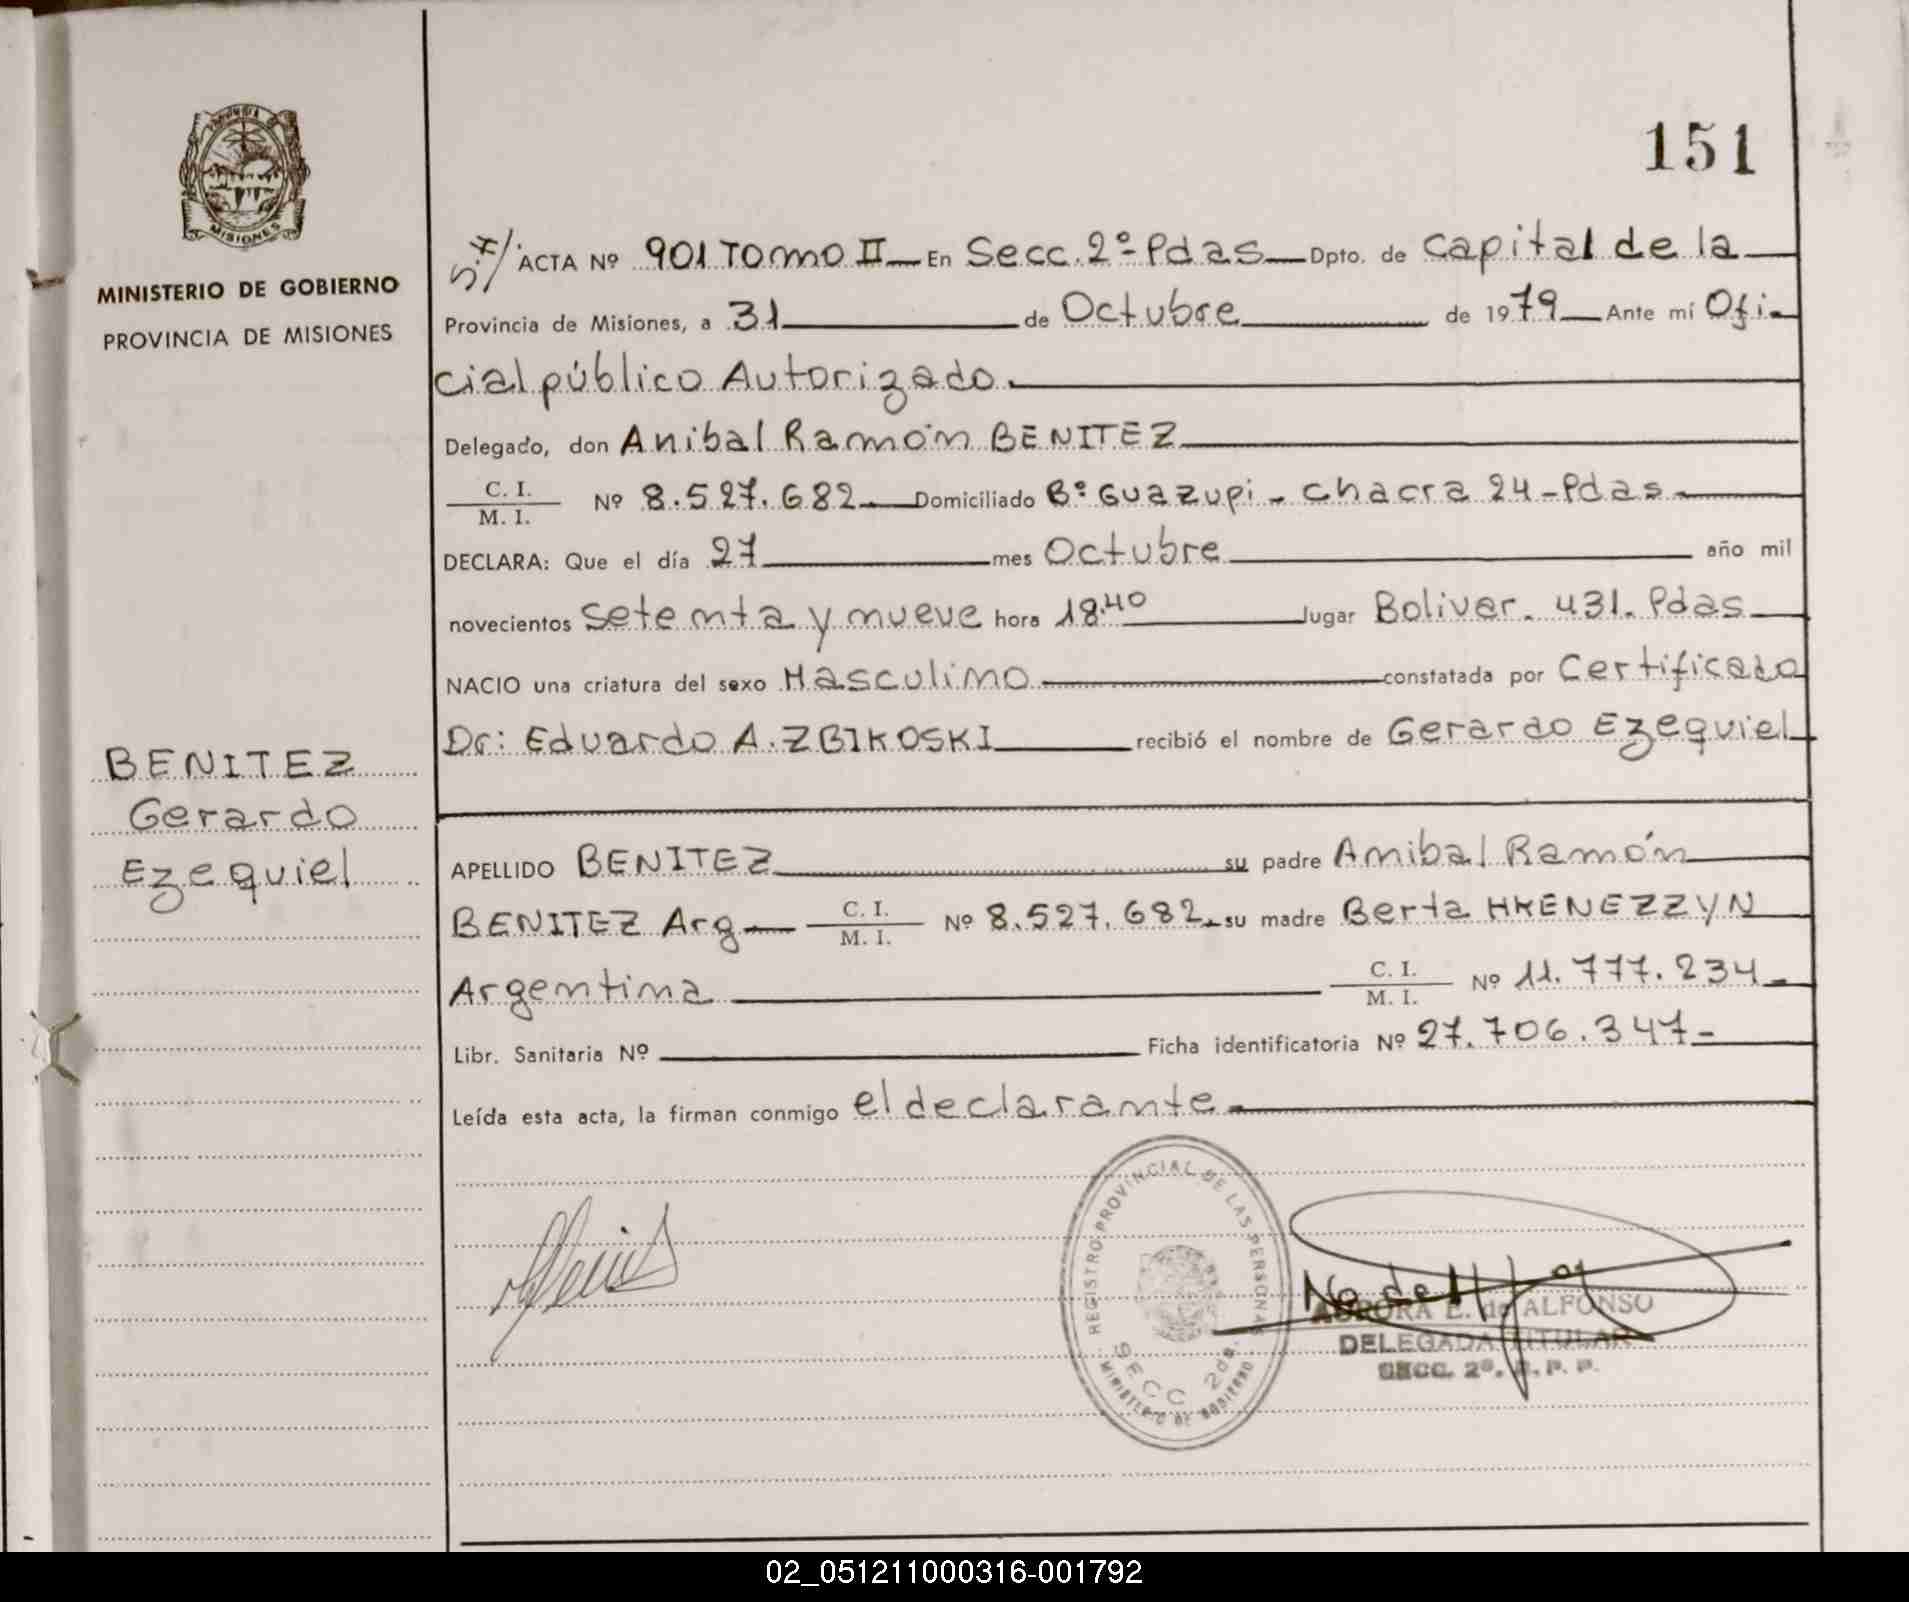 151
MINISTERIO DE GOBIERNO
PROVINCIA DE MISIONES
PROVINCIA DE
MISIONES
BENITEZ
Gerardo
Ezequiel
ACTA Nº 901 TOMO II En Secc. 2º Pdas Dpto. de Capital de la
Provincia de Misiones, a 31 de Octubre de 1979 Ante mí Ofi-
cial público Autorizado.
Delegado, don Anibal Ramón BENITEZ
C. I.
M. I.
Nº 8.527.682 Domiciliado Bº Guazupi - chacra 24 - Pdas
DECLARA: Que el día 27 mes Octubre año mil
novecientos setenta y nueve hora 18.40 lugar Bolivar. 431. Pdas
NACIO una criatura del sexo Masculino constatada por Certificado
Dr: Eduardo A. ZBIKOSKI recibió el nombre de Gerardo Ezequiel
APELLIDO BENITEZ su padre Anibal Ramón
BENITEZ Arg C. I. M. I. Nº 8.527.682 su madre Berta HKENEZZYN
Argentina C. I. M. I. Nº 11.777.234
Libr. Sanitaria Nº Ficha identificatoria Nº 27.706.347-
Leída esta acta, la firman conmigo el declarante
REGISTRO PROVINCIAL DE LAS PERSONAS
SECC 2da.
MINISTERIO DE GOBIERNO
AURORA E. de ALFONSO
DELEGADA TITULAR
SECC. 2ª. R. P. P.
02_051211000316-001792